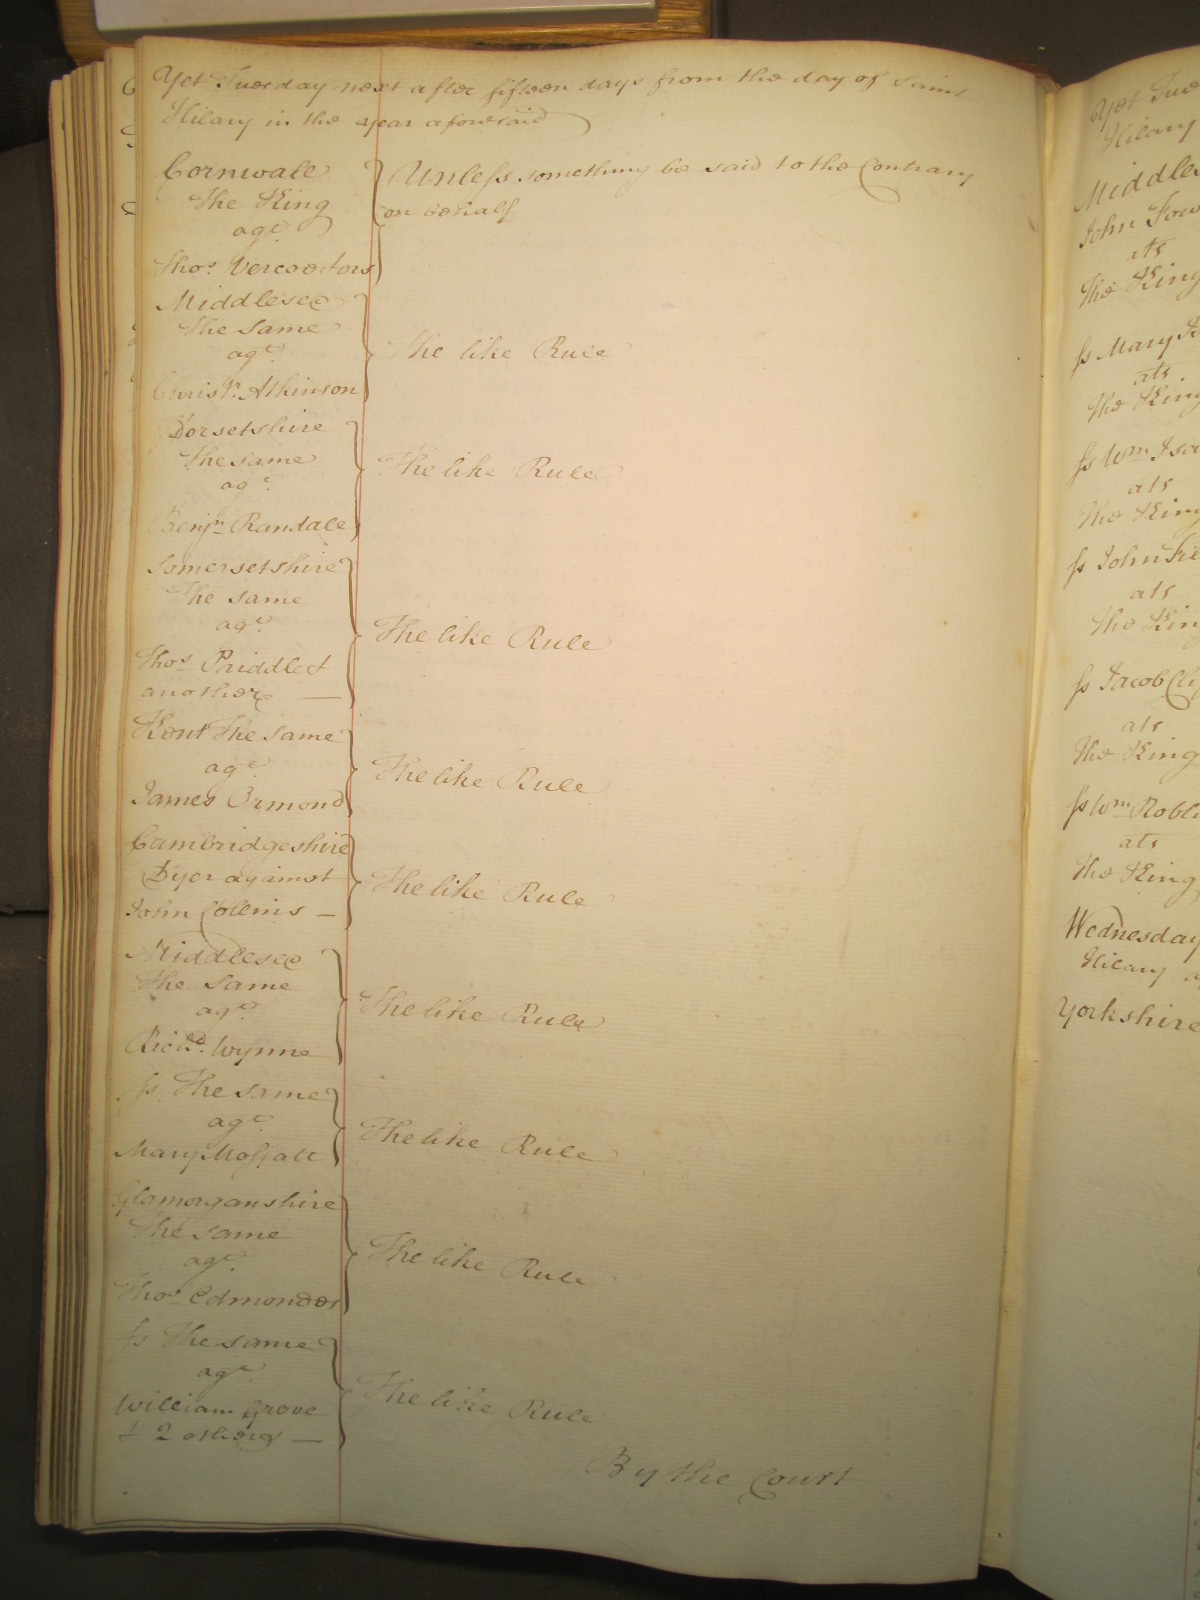 Yet Tuesday next after fifteen days from the day of Saint
Hilary in the year aforesaid
Cornwall
The King
agt.
Thos. Vercoe & ors
Unless something be said to the Contrary
on behalf
Middlesex
The Same
agt.
Christr. Atkinson
The like Rule
Dorsetshire
The same
agt.
Benjn. Randall
The like Rule
Somersetshire
The same
agt.
Thos. Priddle &
another —
The like Rule
Kent The same
agt.
James Ormond
The like Rule
Cambridgeshire
Dyer against
John Collins —
The like Rule
Middlesex
The Same
agt.
Richd. Wynne
The like Rule
ss The same
agt.
Mary Moffatt
The like Rule
Glamorganshire
The same
agt.
Thos. Edmondes
The like Rule
ss The same
agt.
William Grove
& 2 others —
The like Rule
By the Court
Yet Tue
Hilary
Middles
John Fow
ats
The King
ss Mary
ats
The King
ss Wm. Isa
ats
The King
ss John Fie
ats
The King
ss Jacob
ats
The King
ss Wm. Robi
ats
The King
Wednesday
Hilary
Yorkshire